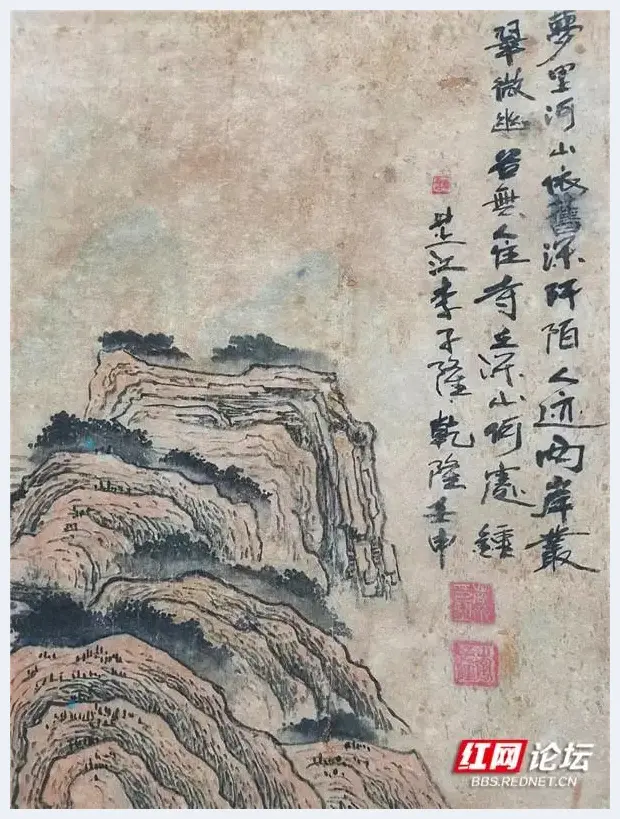 夢里河山依舊深阡陌人迹兩岸叢
翠微幽谷無人住寺深山何處鍾
芷江李子隆乾隆壬申
红网论坛
BBS.REDNET.CN